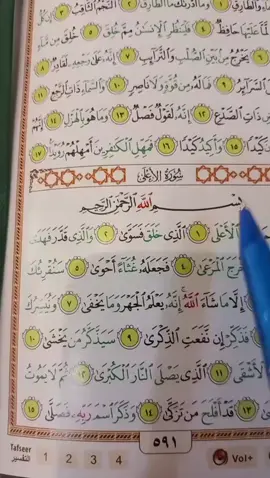 وَمَا أَدْرَىٰكَ مَا الطَّارِقُ ٢ النَّجْمُ الثَّاقِبُ
حَافِظٌ ٤ فَلْيَنظُرِ الْإِنسَٰنُ مِمَّ خُلِقَ ٥ خُلِقَ مِن مَّاءٍ
٦ يَخْرُجُ مِنۢ بَيْنِ الصُّلْبِ وَالتَّرَائِبِ ٧ إِنَّهُ عَلَىٰ رَجْعِهِ لَقَادِرٌ ٨
السَّرَائِرُ ٩ فَمَا لَهُ مِن قُوَّةٍ وَلَا نَاصِرٍ ١٠ وَالسَّمَاءِ ذَاتِ الرَّجْعِ ١١
ذَاتِ الصَّدْعِ ١٢ إِنَّهُ لَقَوْلٌ فَصْلٌ ١٣ وَمَا هُوَ بِالْهَزْلِ ١٤ إِنَّهُمْ
كَيْدًا ١٥ وَأَكِيدُ كَيْدًا ١٦ فَمَهِّلِ الْكَٰفِرِينَ أَمْهِلْهُمْ رُوَيْدًۢا ١٧
سُورَةُ الأَعْلَى
بِسْمِ اللَّهِ الرَّحْمَٰنِ الرَّحِيمِ
الْأَعْلَى ١ الَّذِي خَلَقَ فَسَوَّىٰ ٢ وَالَّذِي قَدَّرَ فَهَدَىٰ
أَخْرَجَ الْمَرْعَىٰ ٤ فَجَعَلَهُ غُثَاءً أَحْوَىٰ ٥ سَنُقْرِئُكَ
إِلَّا مَا شَاءَ اللَّهُ إِنَّهُ يَعْلَمُ الْجَهْرَ وَمَا يَخْفَىٰ ٧ وَنُيَسِّرُكَ
فَذَكِّرْ إِن نَّفَعَتِ الذِّكْرَىٰ ٩ سَيَذَّكَّرُ مَن يَخْشَىٰ ١٠
الْأَشْقَى ١١ الَّذِي يَصْلَى النَّارَ الْكُبْرَىٰ ١٢ ثُمَّ لَا يَمُوتُ
١٣ قَدْ أَفْلَحَ مَن تَزَكَّىٰ ١٤ وَذَكَرَ اسْمَ رَبِّهِ فَصَلَّىٰ ١٥
٥٩١
Tafseer 1 2 3 4 Vol+
التفسير